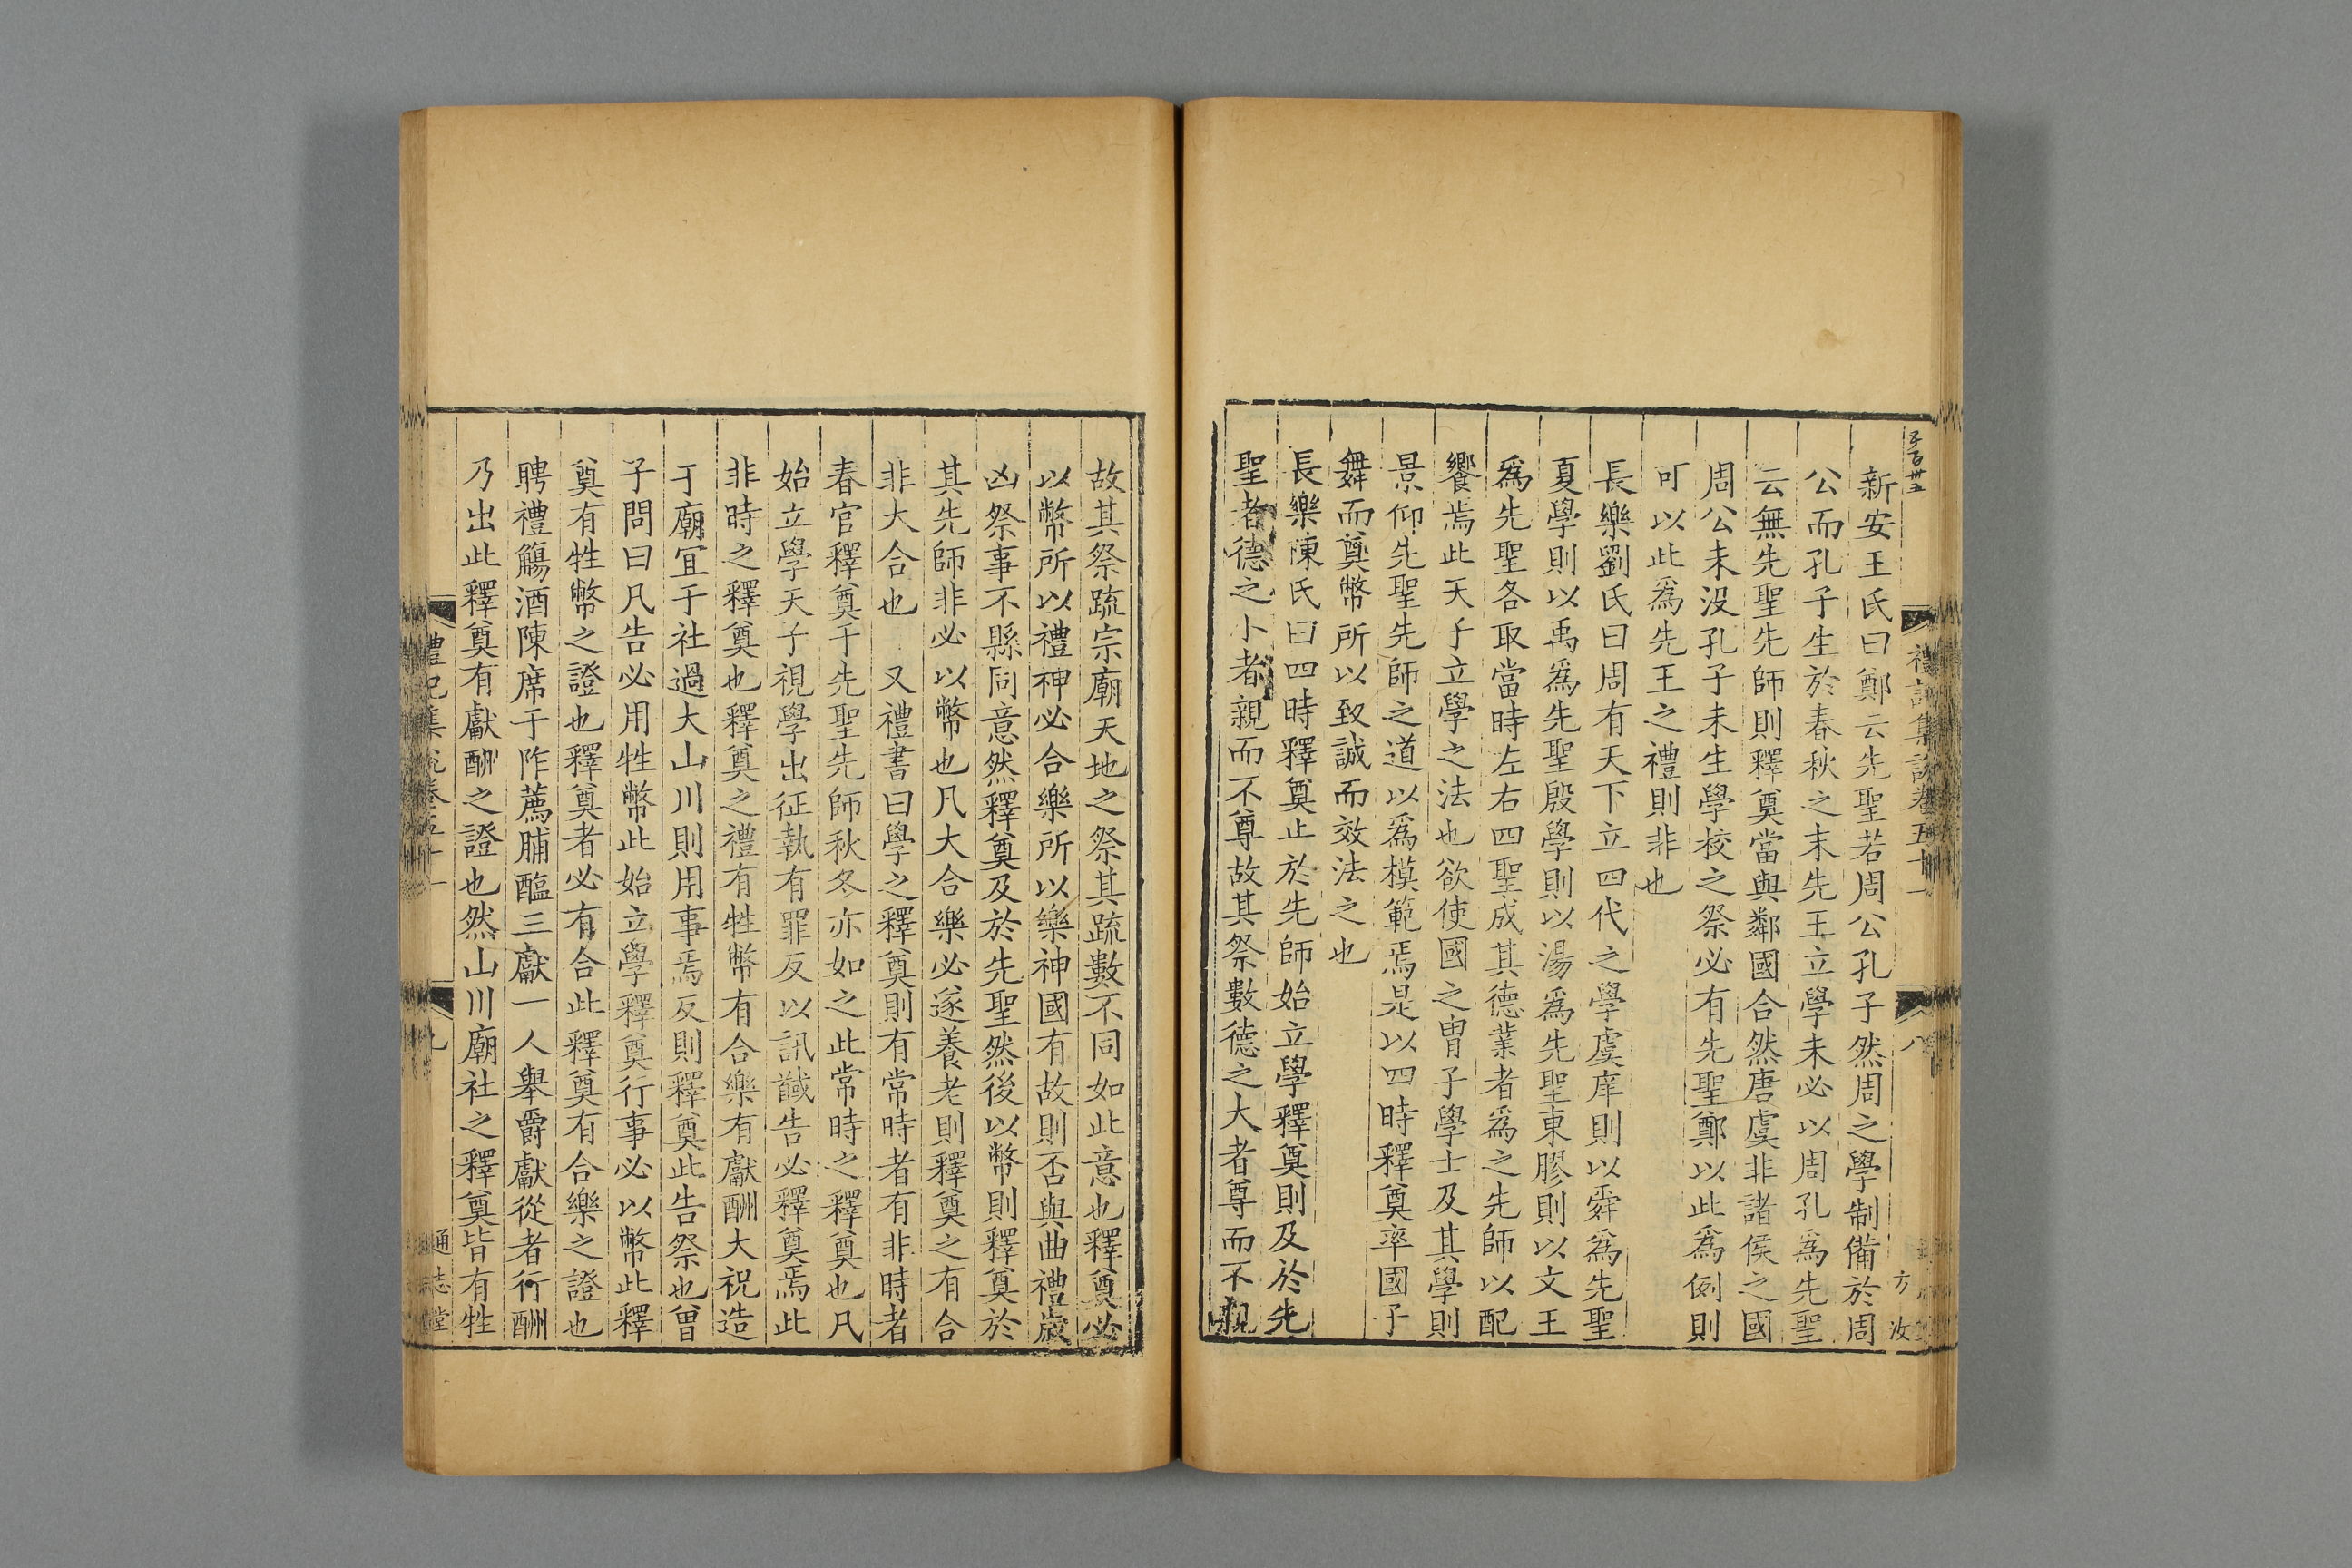 新安王氏曰鄭云先聖若周公孔子然周之學制備於周
公而孔子生於春秋之末先王立學未必以周孔爲先聖
云無先聖先師則釋奠當與鄰國合然唐虞非諸侯之國
周公未没孔子未生學校之祭必有先聖鄭以此爲例則
可以此爲先王之禮則非也
長樂劉氏曰周有天下立四代之學虞庠則以舜爲先聖
夏學則以禹爲先聖殷學則以湯爲先聖東膠則以文王
爲先聖各取當時左右四聖成其德業者爲之先師以配
饗焉此天子立學之法也欲使國之胄子學士及其學則
景仰先聖先師之道以爲模範焉是以四時釋奠率國子
舞而奠幣所以致誠而效法之也
長樂陳氏曰四時釋奠止於先師始立學釋奠則及於先
聖者德之小者親而不尊故其祭數德之大者尊而不親
故其祭疏宗廟天地之祭其疏數不同如此意也釋奠必
以幣所以禮神必合樂所以樂神國有故則否與曲禮歲
凶祭事不縣同意然釋奠及於先聖然後以幣則釋奠於
其先師非必以幣也凡大合樂必遂養老則釋奠之有合
非大合也 又禮書曰學之釋奠則有常時者有非時者
春官釋奠于先聖先師秋冬亦如之此常時之釋奠也凡
始立學天子視學出征執有罪反以訊馘告必釋奠焉此
非時之釋奠也釋奠之禮有牲幣有合樂有獻酬大祝造
于廟宜于社過大山川則用事焉反則釋奠此告祭也曾
子問曰凡告必用牲幣此始立學釋奠行事必以幣此釋
奠有牲幣之證也釋奠者必有合此釋奠有合樂之證也
聘禮觴酒陳席于阼薦脯醢三獻一人舉爵獻從者行酬
乃出此釋奠有獻酬之證也然山川廟社之釋奠皆有牲
禮記集説卷五十一
九
通志堂